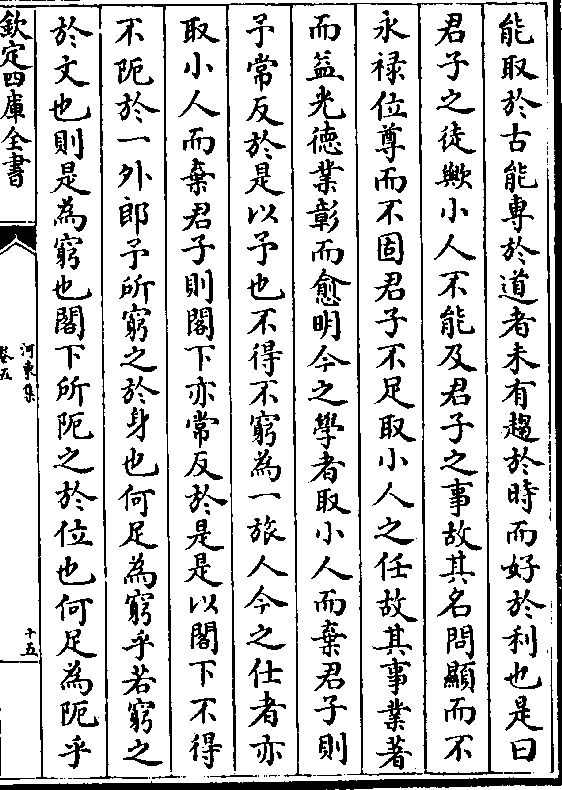 能取於古能專於道者未有趨於時而好於利也是曰
君子之徒歟小人不能及君子之事故其名問顯而不
永禄位尊而不固君子不足取小人之任故其事業著
而益光德業彰而愈明今之學者取小人而棄君子則
予常反於是以予也不得不窮為一旅人今之仕者亦
取小人而棄君子則閣下亦常反於是是以閣下不得
不阨於一外郎予所窮之於身也何足為窮乎若窮之
於文也則是為窮也閣下所阨之於位也何足為阨乎
欽定四庫全書
河東集
卷五
十五